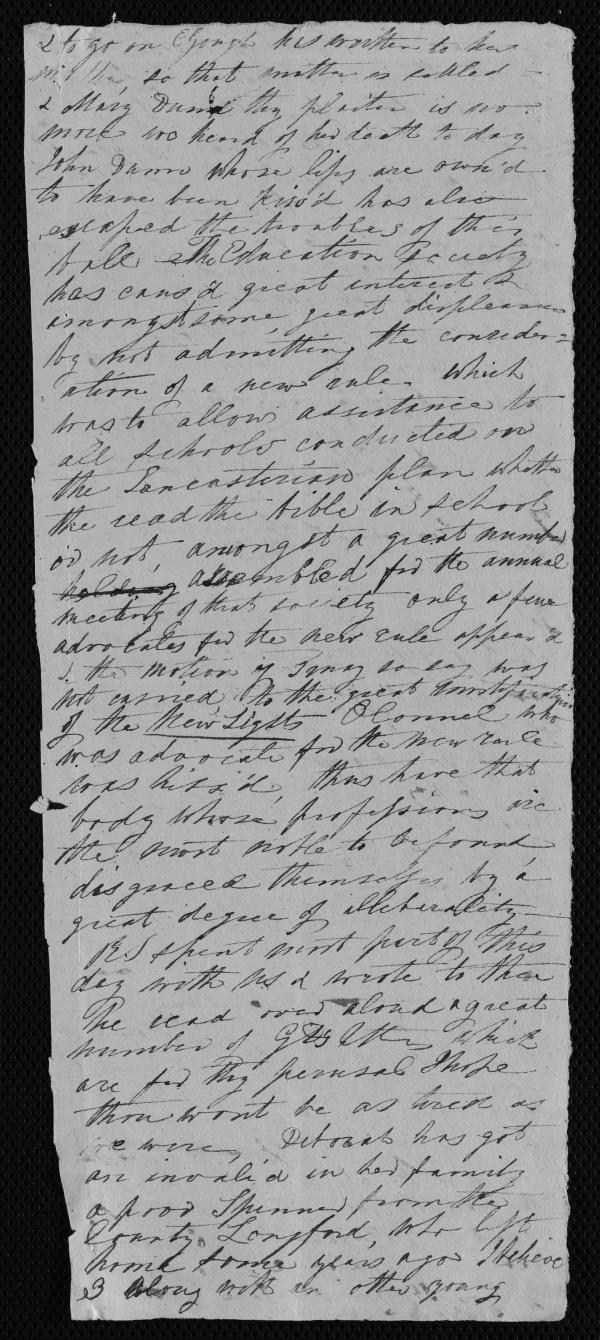 & to go on C Gough has written to her
mother, so that matter is settled –
& Mary Dunn thy plaiter is no
more we heard of her death to day
John Dunn whose lips are own'd
to have been kiss'd has also
escaped the troubles of this
ball – The Education Society
has caus'd great interest &
amongst some great displeasure
by not admitting the consider=
ation of a new rule. which
was to allow assistance to
all schools conducted on
the Lancasterian plan whether
the read the bible in school
or not, amongst a great number
holding assembled for the annual
meeting of that society only a few
advocates for the new rule appear'd
& the motion if I may so say was
not carried to the great mortification
of the New Lights O Connel who
was advocate for the new rule
was hiss'd, thus have that
body whose professions are
the most noble to be found
disgraced themselves by a
great degree of illiberality –
spent most part of this
day with us & wrote to thee
he read over aloud a great
number of letters which
are for thy perusal I hope
thou wont be as tired as
we were, Deborah has got
an invalid in her family
a poor Spinner from the
County Longford, who left
home some years ago I believe
along with an other young